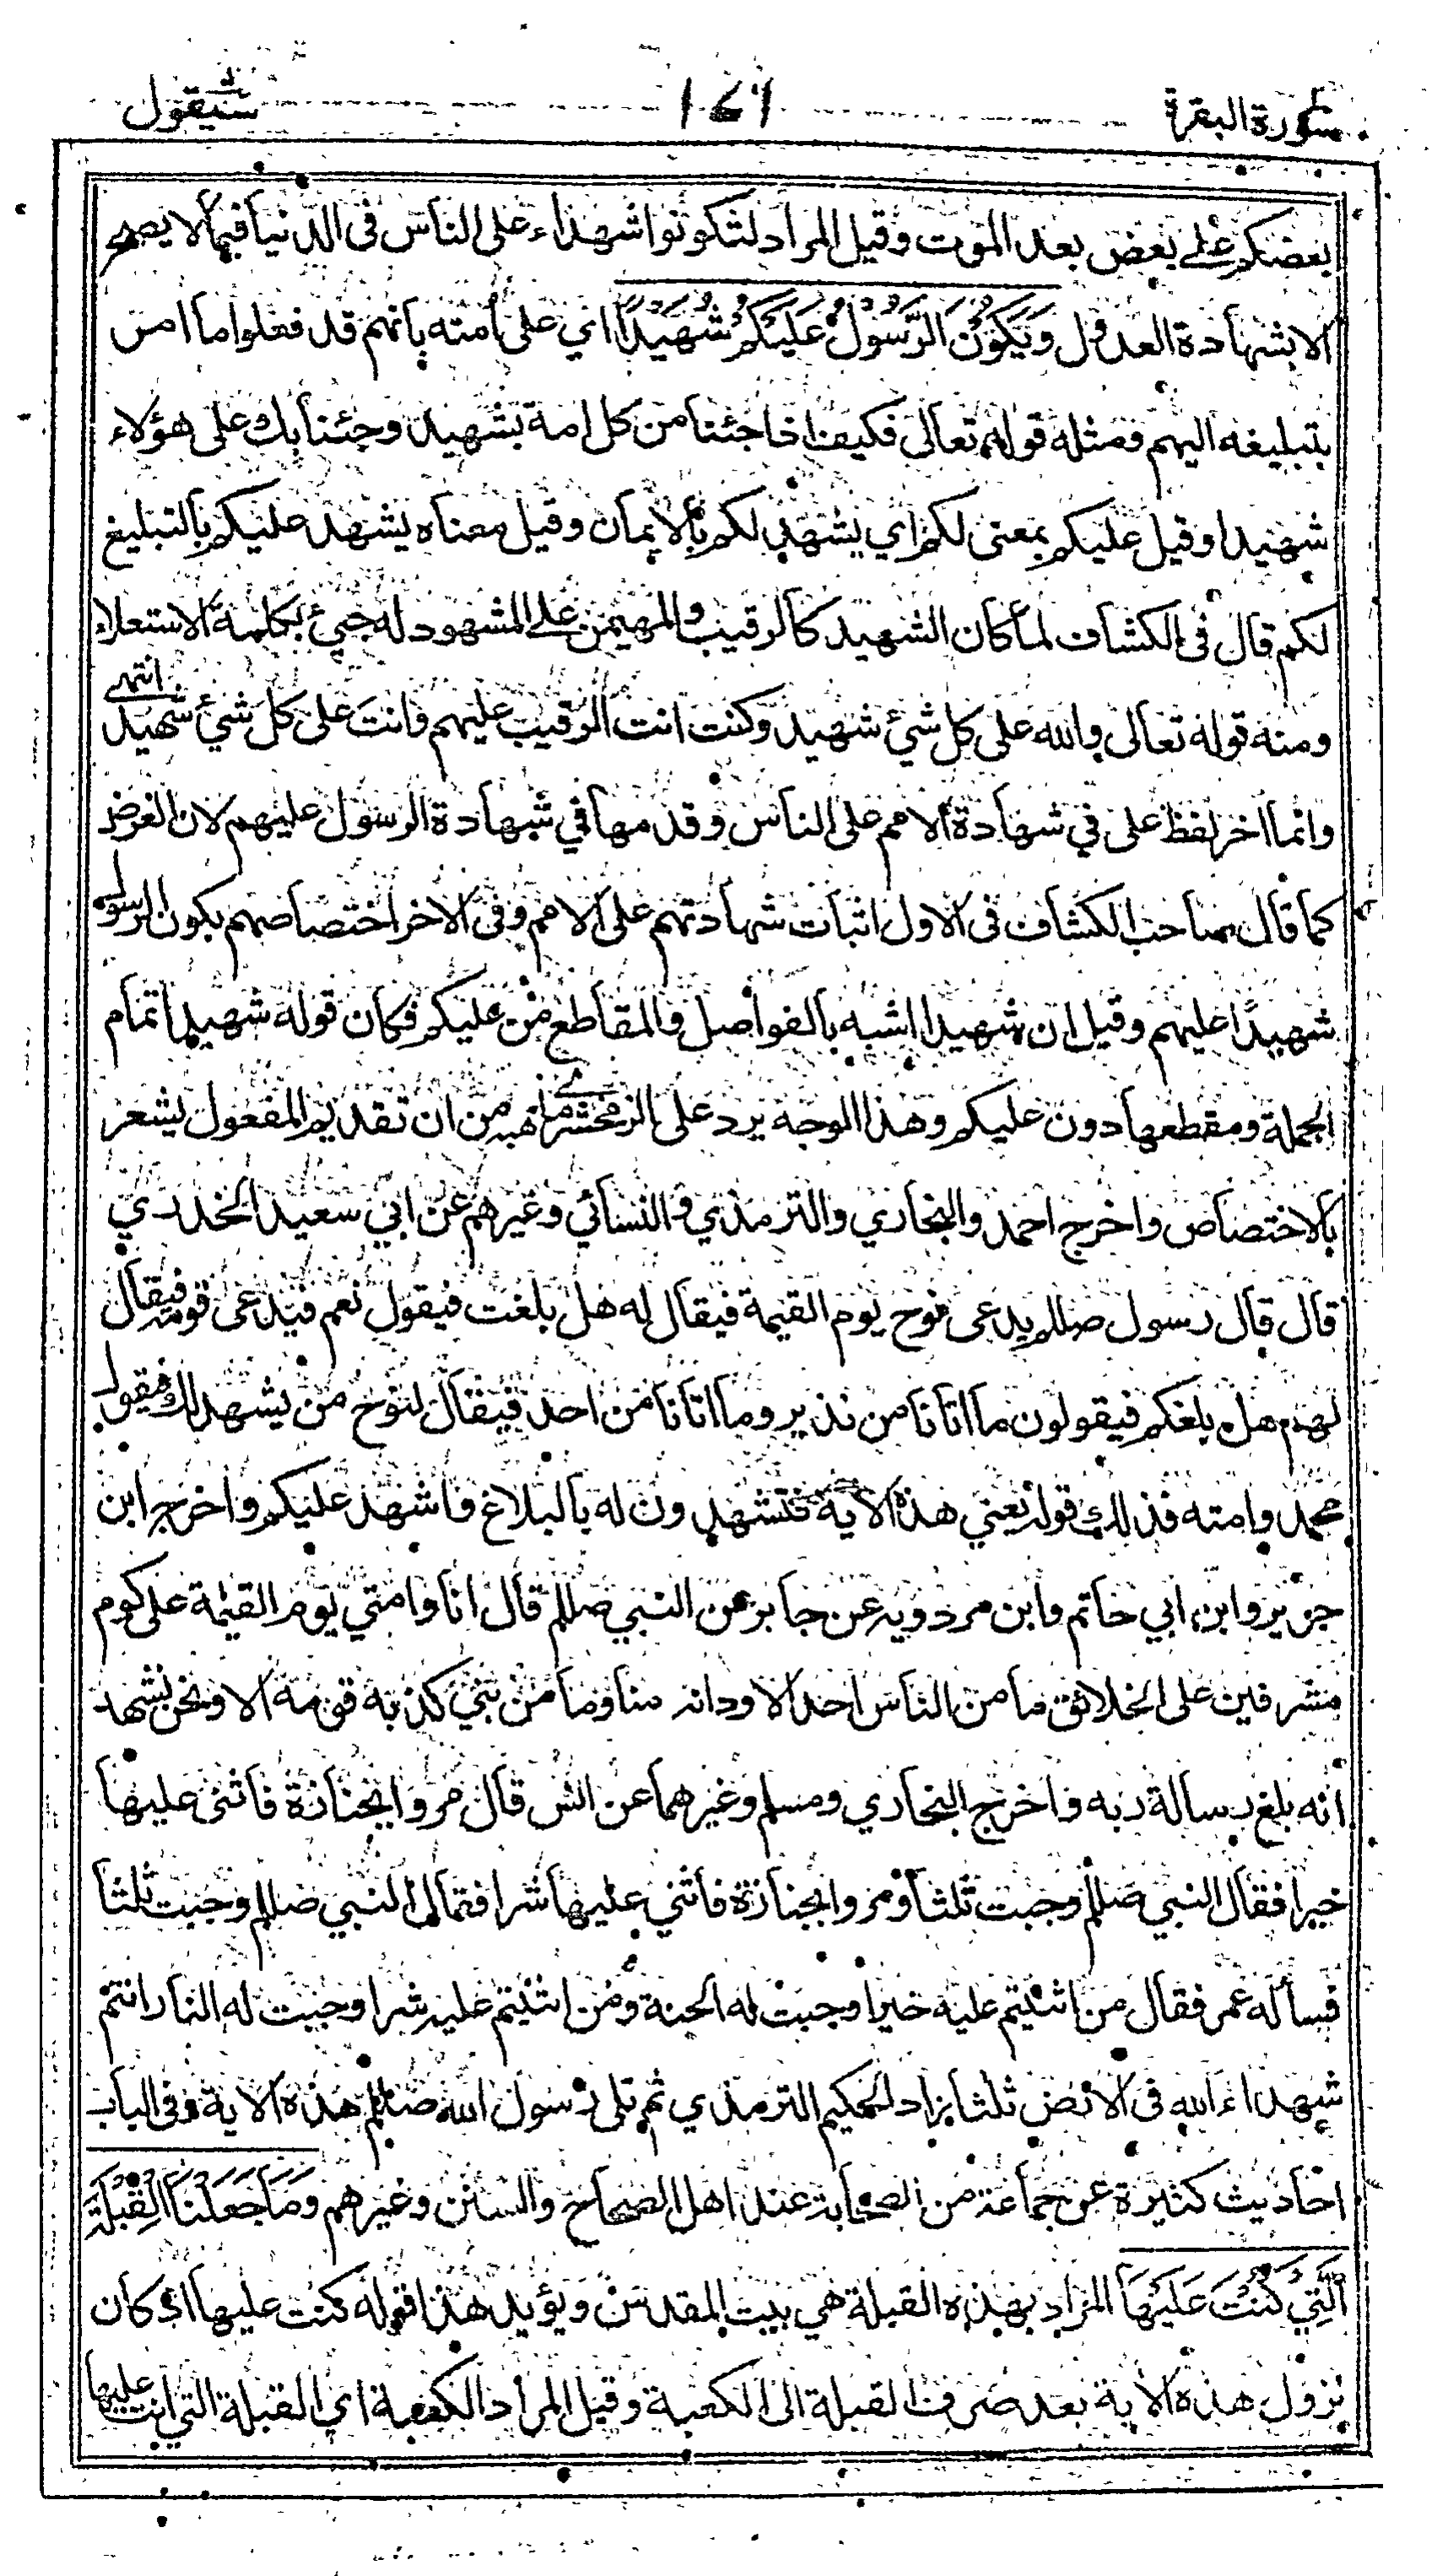 سورة البقرة ١٧٦ سيقول
بعضكم على بعض بعد الموت وقيل المراد لتكونوا شهداء على الناس في الدنيا فيما لا يصح
الا بشهادة العدول وَيَكُوْنَ الرَّسُوْلُ عَلَيْكُمْ شَهِيْدًا اي على أمته بانهم قد فعلوا ما امر
بتبليغه اليهم ومثله قوله تعالى فكيف اذا جئنا من كل امة بشهيد وجئنا بك على هؤلاء
شهيدا وقيل عليكم بمعنى لكم اي يشهد لكم بالايمان وقيل معناه يشهد عليكم بالتبليغ
لكم قال في الكشاف لما كان الشهيد كالرقيب والمهيمن على المشهود له جئ بكلمة الاستعلاء
ومنه قوله تعالى والله على كل شئ شهيد وكنت انت الرقيب عليهم وانت على كل شئ شهيد انتهى
وانما اخر لفظ على في شهادة الامم على الناس وقدمها في شهادة الرسول عليهم لان الغرض
كما قال صاحب الكشاف في الاول اثبات شهادتهم على الامم وفي الاخر اختصاصهم بكون الرسول
شهيدًا عليهم وقيل ان شهيدا اشبه بالفواصل والمقاطع من عليكم فكان قوله شهيدا تمام
الجملة ومقطعها دون عليكم وهذا الوجه يرد على الزمخشري مذهبه من ان تقديم المفعول يشعر
بالاختصاص واخرج احمد والبخاري والترمذي والنسائي وغيرهم عن ابي سعيد الخدري
قال قال رسول صللم يدعى نوح يوم القيمة فيقال له هل بلغت فيقول نعم فيدعى قومه فيقال
لهم هل بلغكم فيقولون ما اتانا من نذير وما اتانا من احد فيقال لنوح من يشهد لك فيقول
محمد وامته فذلك قوله يعني هذه الاية فتشهدون له بالبلاغ واشهد عليكم واخرج ابن
جرير وابن ابي حاتم وابن مردويه عن جابر عن النبي صللم قال انا وامتي يوم القيمة على كوم
مشرفين على الخلائق ما من الناس احد الا ود انه منا وما من نبي كذبه قومه الا ونحن نشهد
انه بلغ رسالة ربه واخرج البخاري ومسلم وغيرهما عن انس قال مروا بجنازة فاثنى عليها
خيرا فقال النبي صللم وجبت ثلثا ومروا بجنازة فاثني عليها شرا فقال النبي صللم وجبت ثلثا
فسأله عمر فقال من اثنيتم عليه خيرا وجبت له الجنة ومن اثنيتم عليه شرا وجبت له النار انتم
شهداء الله في الارض ثلثا زاد الحكيم الترمذي ثم تلى رسول الله صللم هذه الاية وفي الباب
احاديث كثيرة عن جماعة من الصحابة عند اهل الصحاح والسنن وغيرهم وَمَا جَعَلْنَا الْقِبْلَةَ
الَّتِيْ كُنْتَ عَلَيْهَا المراد بهذه القبلة هي بيت المقدس ويؤيد هذا قوله كنت عليها اذ كان
نزول هذه الاية بعد صرف القبلة الى الكعبة وقيل المراد الكعبة اي القبلة التي انت عليها